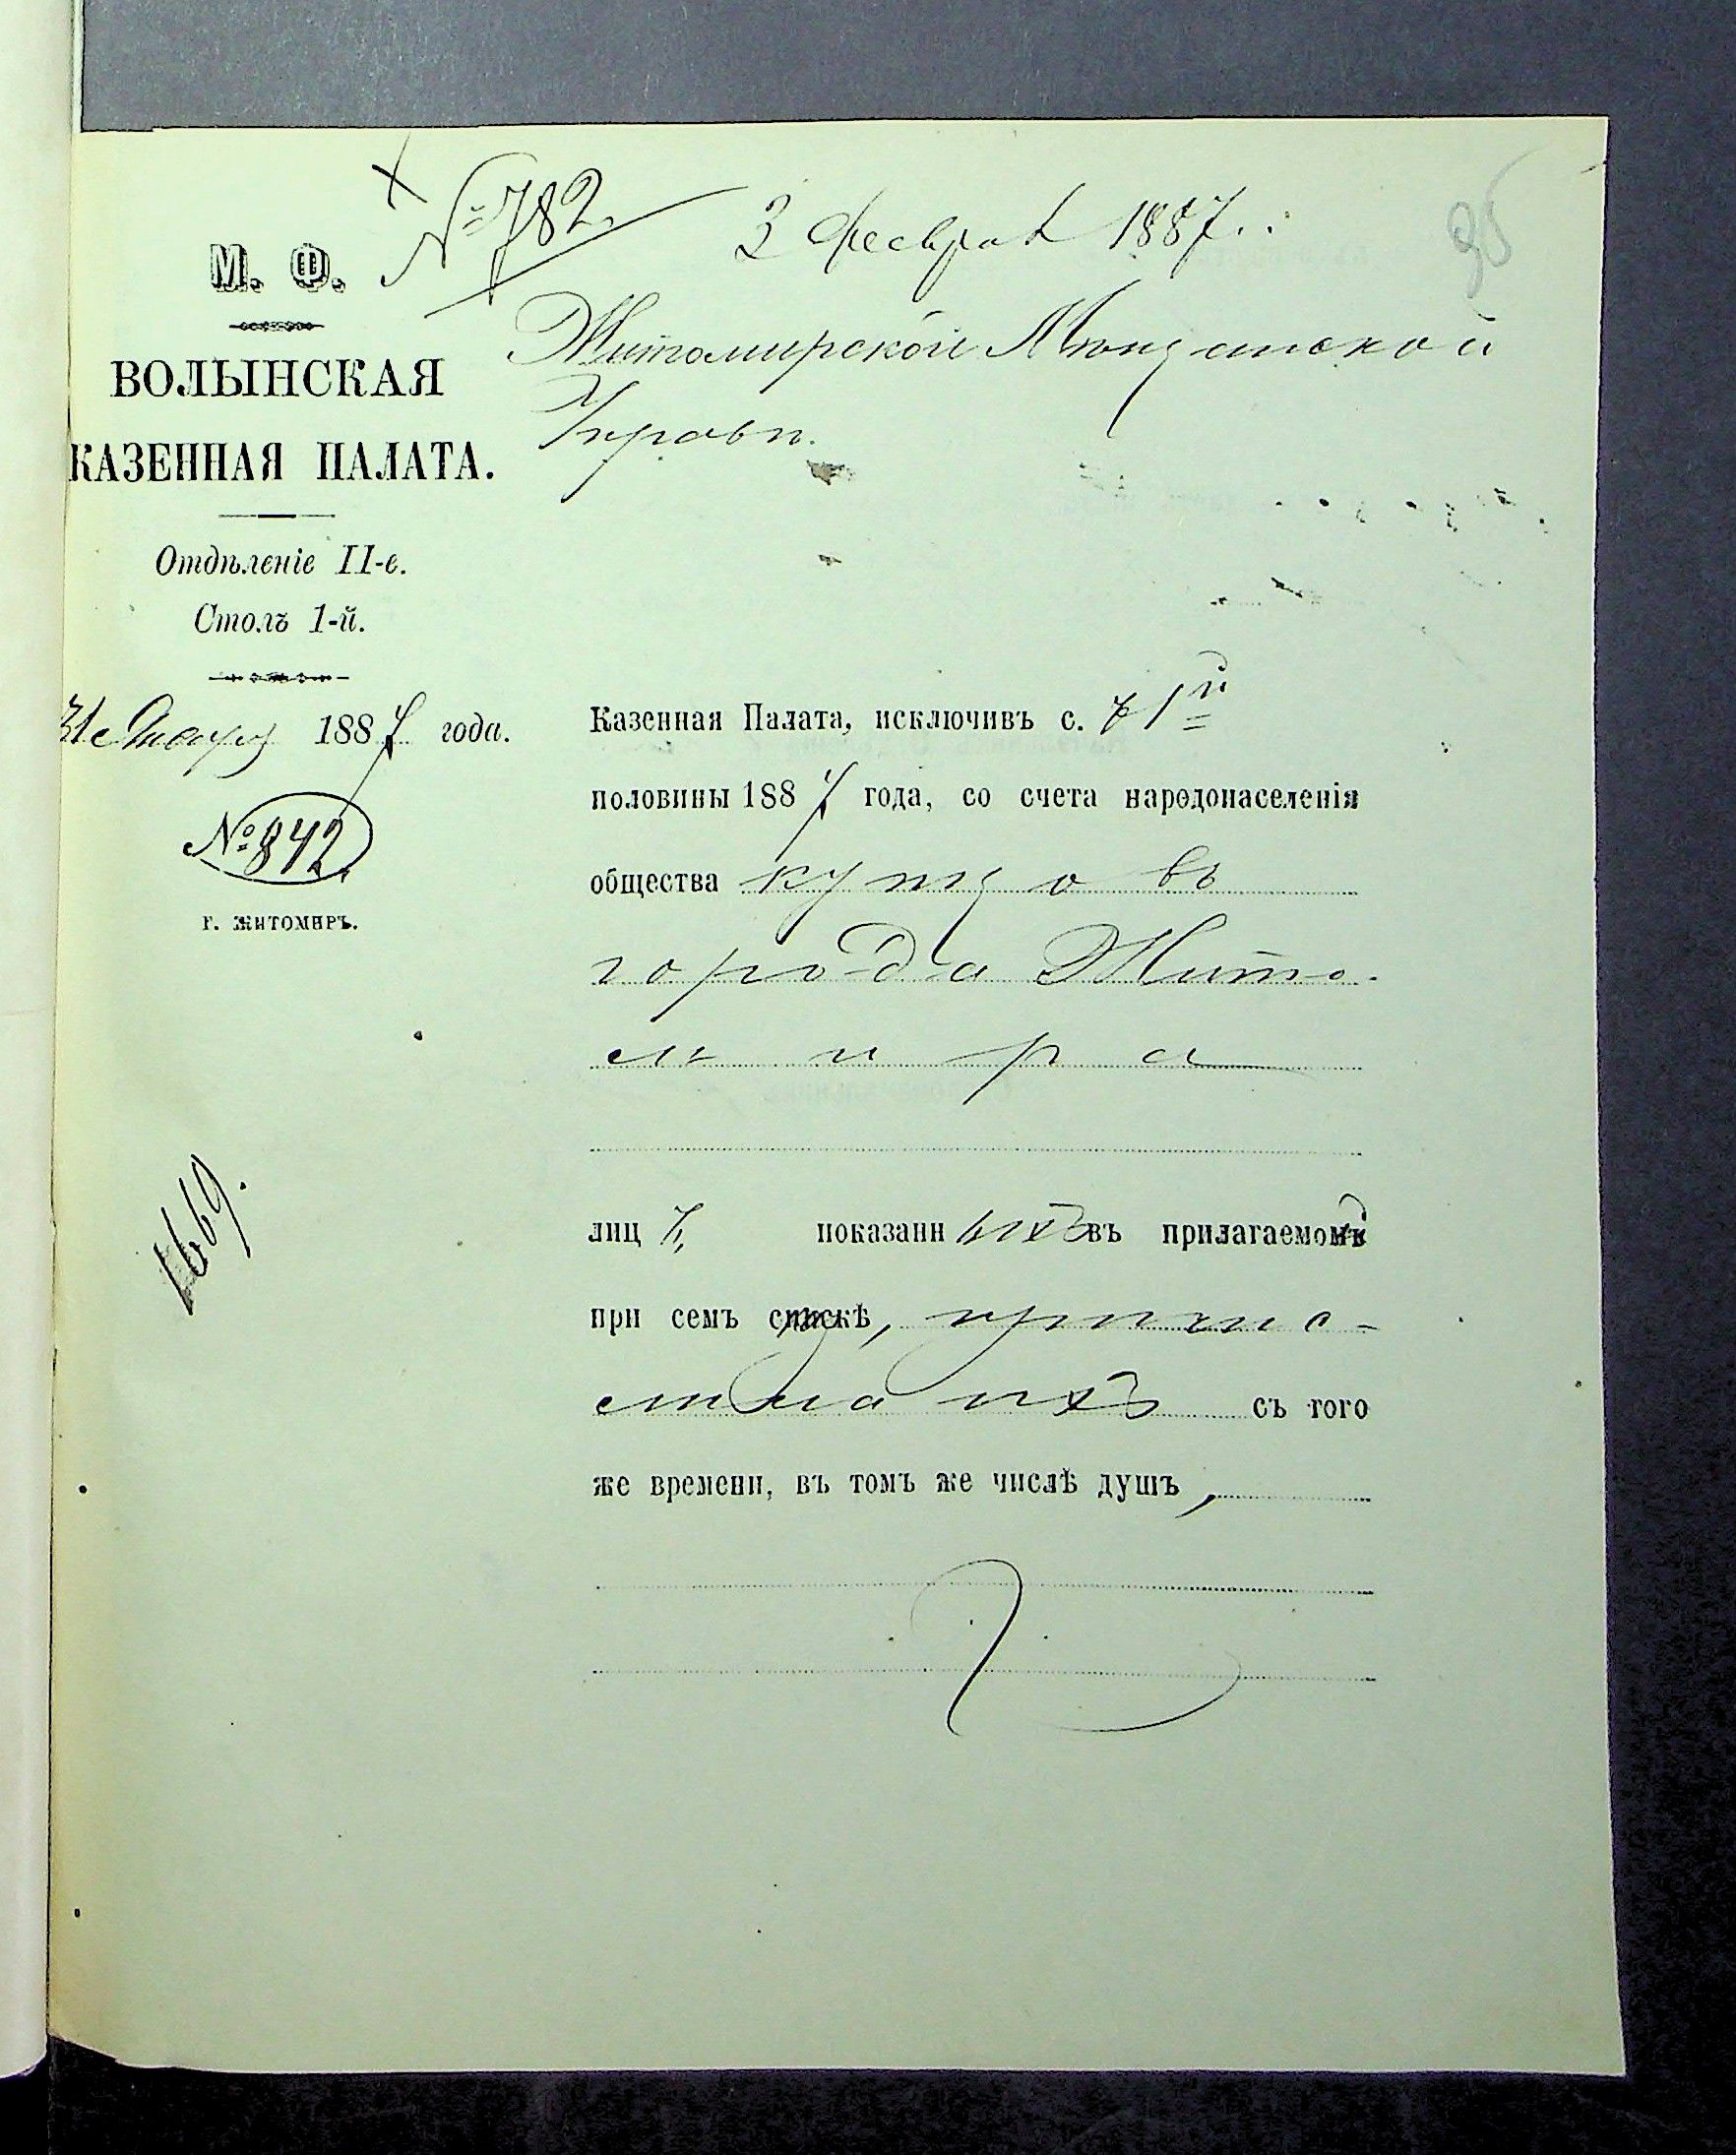 № 782.
3 Феврал 1887 г.
95
М. Ф.
ВОЛЫНСКАЯ
КАЗЕННАЯ ПАЛАТА.
Отдѣленіе II-е.
Столъ 1-й.
31 Января 1887 года.
№ 842.
г. ЖИТОМИРЪ.
1669.
Житомирской Мѣщанской
Управѣ.
Казенная Палата, исключивъ с. ъ 1й
половины 1887 года, со счета народонаселенія
общества купцовъ
города Жито-
мира
лицъ, показанныхъ въ прилагаемомъ
при семъ спискѣ, причис-
лила ихъ съ того
же времени, въ томъ же числѣ душъ,